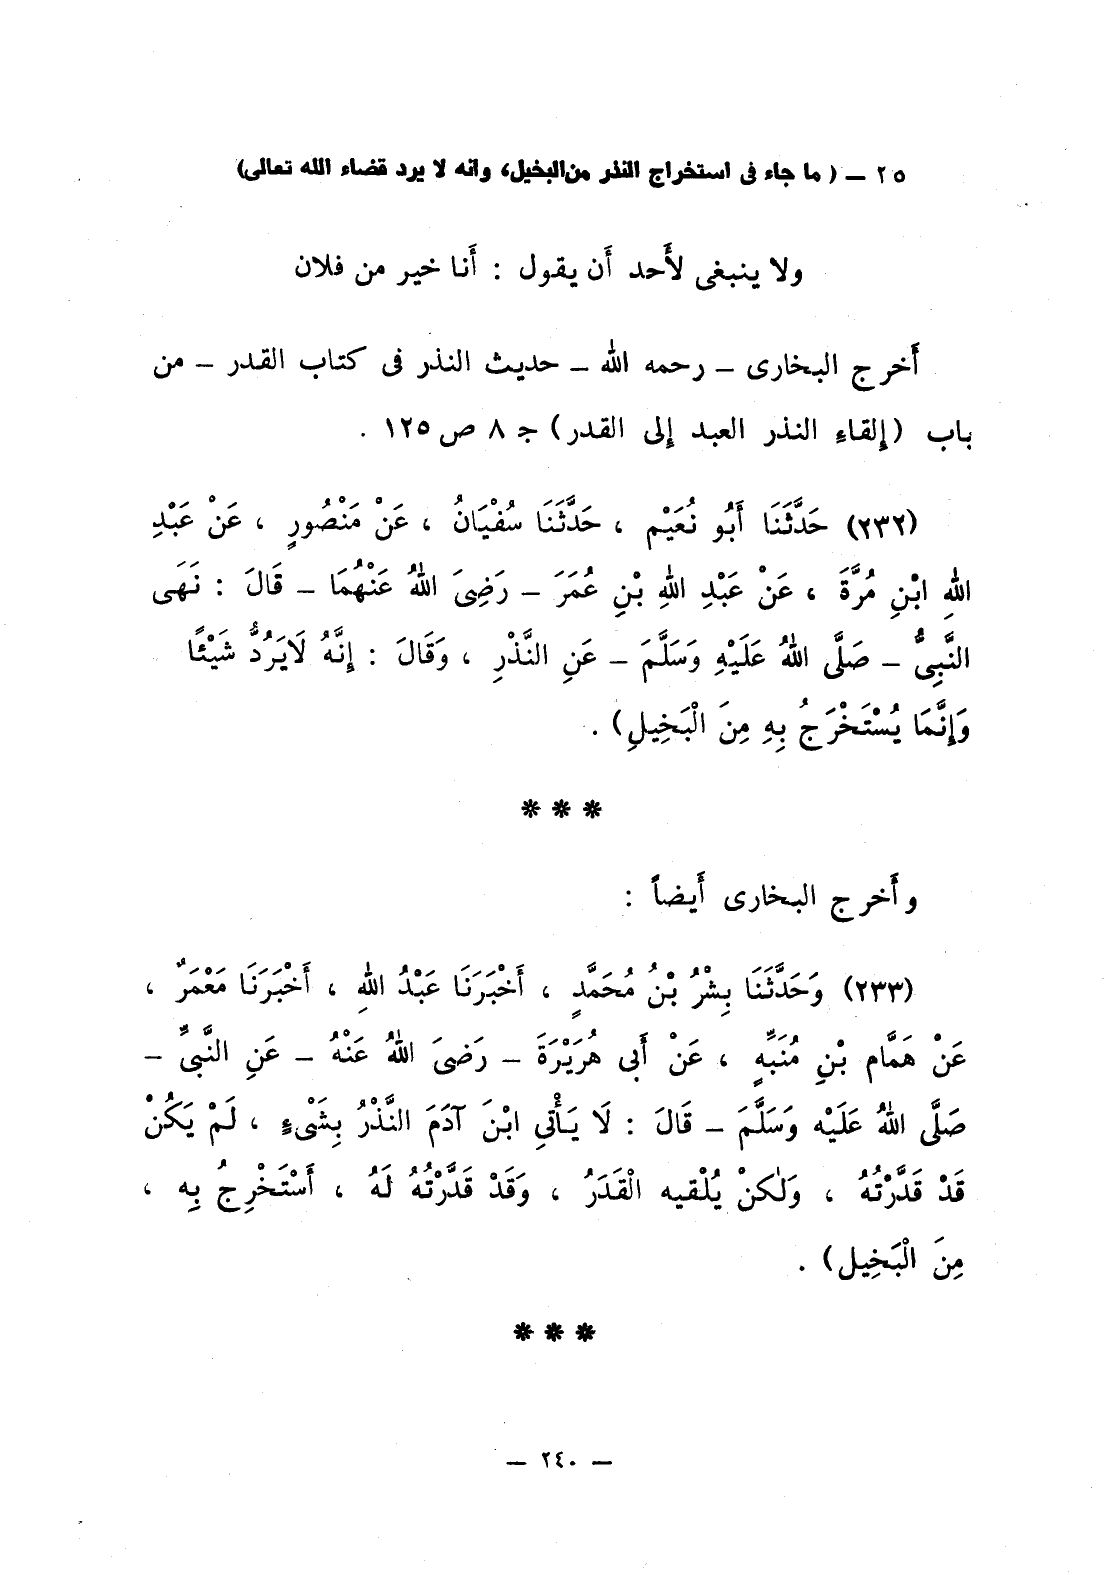 ٢٥ ــ ( ما جاء فى استخراج النذر من البخيل، وانه لا يرد قضاء الله تعالى)
ولا ينبغى لأَحد أَن يقول : أَنا خير من فلان
أَخرج البخارى ــ رحمه الله ــ حديث النذر فى كتاب القدر ــ من
باب (إلقاءِ النذر العبد إلى القدر) جـ ٨ ص ١٢٥ .
(٢٣٢) حَدَّثَنَا أَبُو نُعَيْم ، حَدَّثَنَا سُفْيَانُ ، عَنْ مَنْصُورٍ ، عَنْ عَبْدِ
اللهِ ابْنِ مُرَّةَ ، عَنْ عَبْدِ اللهِ بْنِ عُمَرَ ــ رَضِىَ اللهُ عَنْهُمَا ــ قَالَ : نَهَى
النَّبِىُّ ــ صَلَّى اللهُ عَلَيْهِ وَسَلَّمَ ــ عَنِ النَّذْرِ ، وَقَالَ : إِنَّهُ لَايَرُدُّ شَيْئًا
وَإِنَّمَا يُسْتَخْرَجُ بِهِ مِنَ الْبَخِيلِ) .
* * *
وأَخرج البخارى أَيضاً :
(٢٣٣) وَحَدَّثَنَا بِشْرُ بْنُ مُحَمَّدٍ ، أَخْبَرَنَا عَبْدُ اللهِ ، أَخْبَرَنَا مَعْمَرٌ ،
عَنْ هَمَّام بْنِ مُنَبِّهٍ ، عَنْ أَبى هُرَيْرَةَ ــ رَضىَ اللهُ عَنْهُ ــ عَنِ النَّبىِّ ــ
صَلَّى اللهُ عَلَيْه وَسَلَّمَ ــ قَالَ : لَا يَأْتِى ابْنَ آدَمَ النَّذْرُ بِشَىْءٍ ، لَمْ يَكُنْ
قَدْ قَدَّرْتُهُ ، وَلٰكنْ يُلْقيه الْقَدَرُ ، وَقَدْ قَدَّرْتُهُ لَهُ ، أَسْتَخْرِجُ بِه ،
مِنَ الْبَخِيل) .
* * *
ــ ٢٤٠ ــ